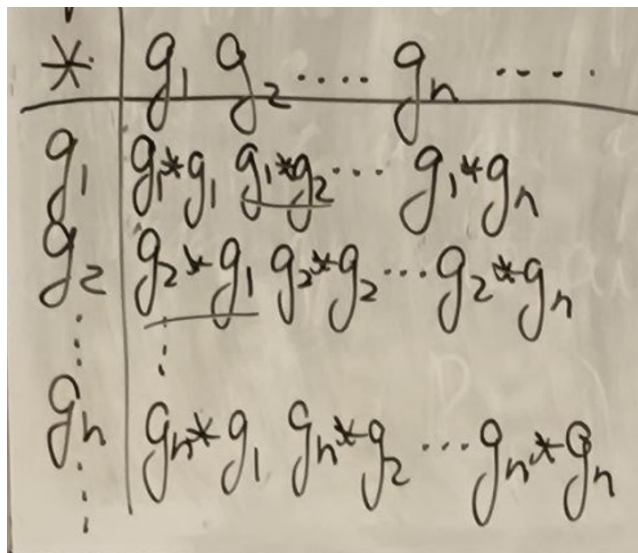 * g₁ g₂ .... gₙ .....
g₁ g₁*g₁ g₁*g₂ ... g₁*gₙ
g₂ g₂*g₁ g₂*g₂ ... g₂*gₙ
⋮ ⋮
gₙ gₙ*g₁ gₙ*g₂ ... gₙ*gₙ
⋮